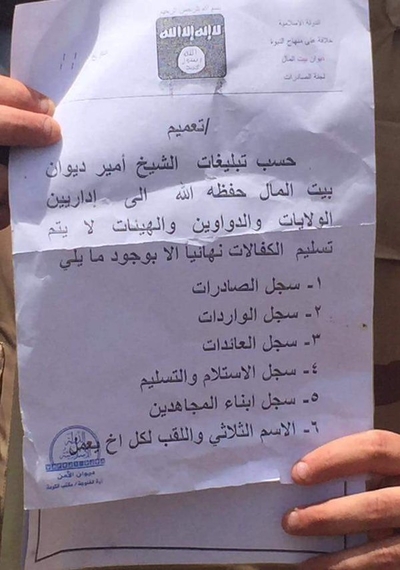 بسم الله الرحمن الرحيم
الدولة الاسلامية
خلافة على منهاج النبوة
ديوان بيت المال
لجنة الصادرات
لا إله إلا الله
الله
رسول
محمد
تعميم/
حسب تبليغات الشيخ أمير ديوان
بيت المال حفظه الله الى إداريين
الولايات والدواوين والهيئات لا يتم
تسليم الكفالات نهائيا الا بوجود ما يلي
١- سجل الصادرات
٢- سجل الواردات
٣- سجل العائدات
٤- سجل الاستلام والتسليم
٥- سجل ابناء المجاهدين
٦- الاسم الثلاثي واللقب لكل اخ يعمل
ديوان الأمن